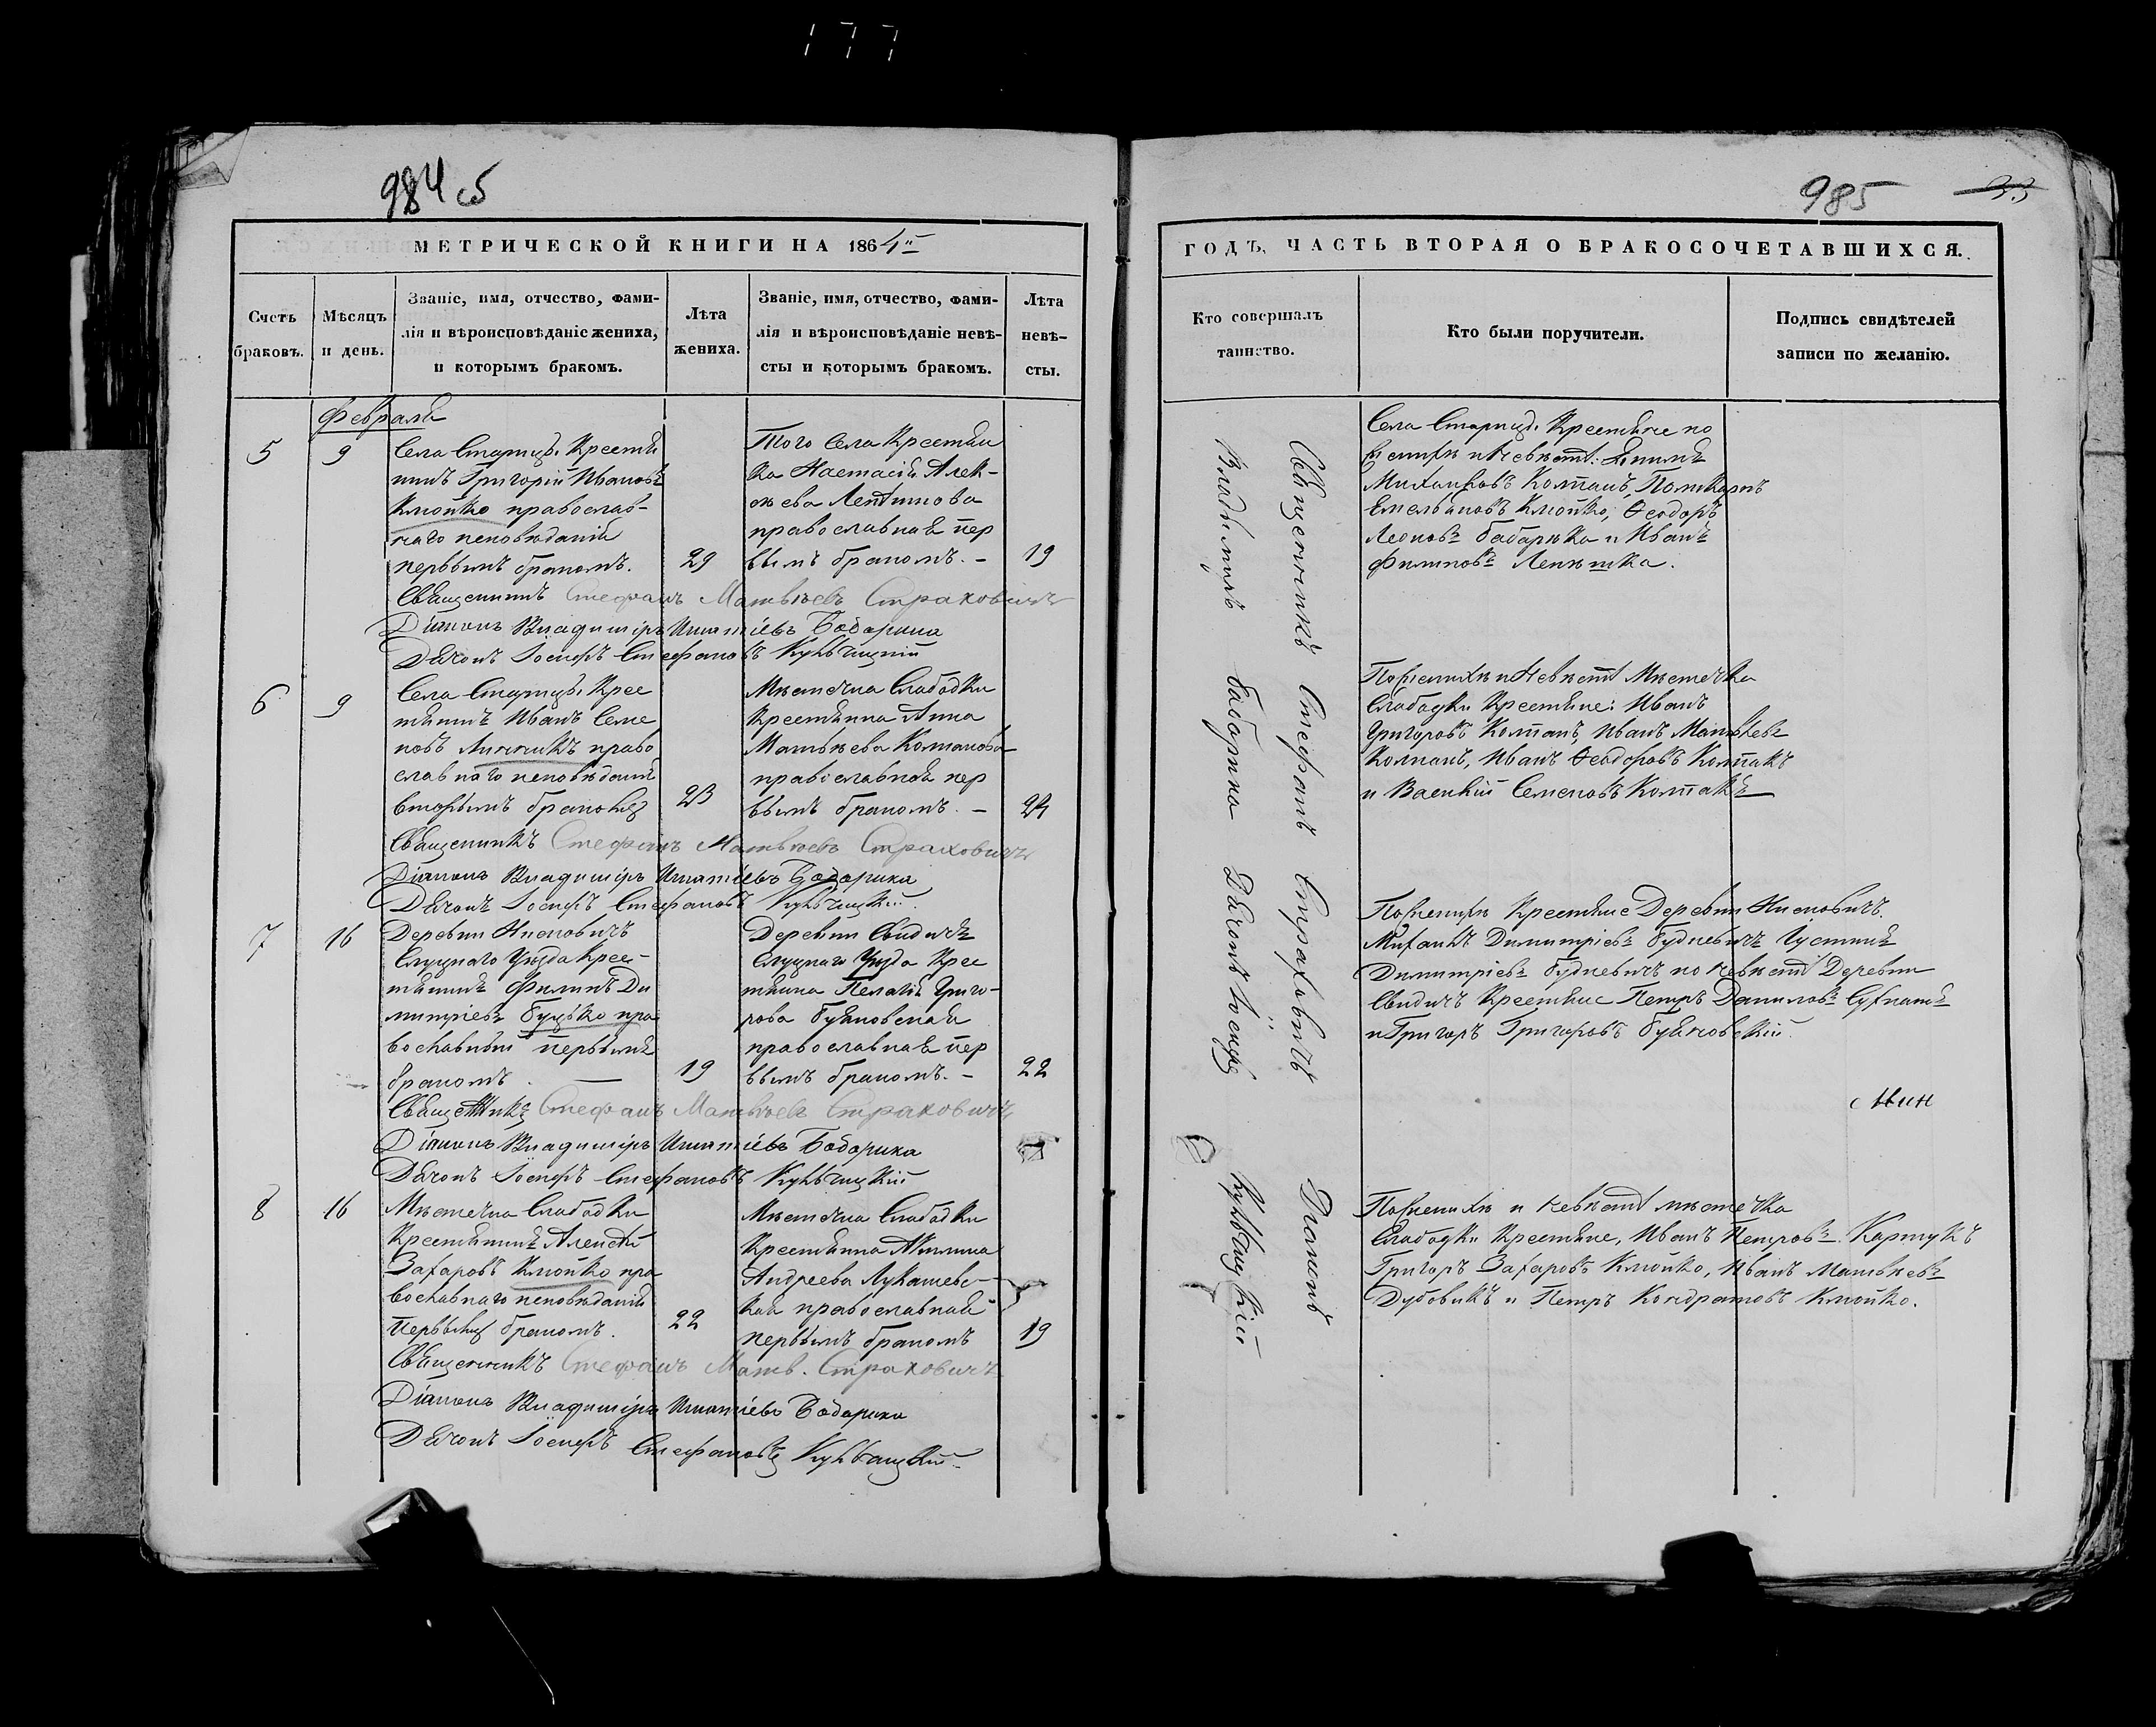 177
984 об
МЕТРИЧЕСКОЙ КНИГИ НА 1864й
Счетъ браковъ.
Мѣсяцъ и день.
Званіе, имя, отчество, фами-
лія и вѣроисповѣданіе жениха,
и которымъ бракомъ.
Лѣта
жениха.
Званіе, имя, отчество, фами-
лія и вѣроисповѣданіе невѣ-
сты и которымъ бракомъ.
Лѣта
невѣ-
сты.
Февраля
5
9
Села Старицы Крестья
нинъ Григорій Ивановъ
Клюйко православ-
наго исповѣданія
первымъ бракомъ.
29
Того Села Крестьян
ка Настасія Алек-
ѣева
православная пер
вымъ бракомъ. –
19
Священникъ Стефанъ Матвѣевъ Страховичъ
Діаконъ Владиміръ Игнатіевъ Бабарика
Дьячокъ Іосифъ Стефановъ Кульчицкій
6
9
Села Старицы Крес
тьянинъ Иванъ Семе
новъ Линникъ право
славнаго исповѣданія
вторымъ бракомъ
23
Мѣстечка Слабодки
Крестьянка Анна
Матвѣева Колтанова
православная пер
вымъ бракомъ. –
24
Священникъ Стефанъ Матвѣевъ Страховичъ
Діаконъ Владиміръ Игнатіевъ Бабарика
Дьячокъ Іосифъ Стефановъ Кульчицкій.
7
16
Деревни
Слуцкаго Уѣзда Крес-
тьянинъ Филипъ Ди
митріевъ Буцько пра
вославный первымъ
бракомъ. —
19
Деревни Свидичъ
Слуцкаго Уѣзда Крес
тьянка Пелагія Григо-
рова Буяновская
православная пер
вымъ бракомъ. –
22
Священникъ Стефанъ Матвѣевъ Страховичъ
Діаконъ Владиміръ Игнатіевъ Бабарика
Дьячокъ Іосифъ Стефановъ Кульчицкій
8
16
Мѣстечка Слабодки
Крестьянинъ Алексѣй
Захаровъ Клюйко пра
вославнаго исповѣданія
первымъ бракомъ.
22
Мѣстечка Слабодки
Крестьянка Акилина
Андреева Лукашевс-
кая православная
первымъ бракомъ
19
Священникъ Стефанъ Матв. Страховичъ
Діаконъ Владиміръ Игнатіевъ Бабарика
Дьячокъ Іосифъ Стефановъ Кульчицкій
985
33
ГОДЪ, ЧАСТЬ ВТОРАЯ О БРАКОСОЧЕТАВШИХСЯ.
Кто совершалъ
таинство.
Кто были поручители.
Подпись свидѣтелей
записи по желанію.
Священникъ Стефанъ Страховичъ Діаконъ
Владиміръ Бабарика Дьячокъ Іосифъ Кульчицкій
Села Старицы Крестьяне по
женихѣ и Невѣстѣ:
Михаиловъ Колтанъ, Поликарпъ
Емельановъ Клюйко, Ѳеодоръ
Леоновъ Бабарѣка и Иванъ
Филиповъ
По женихѣ и Невѣстѣ Мѣстечка
Слабодки Крестьяне: Иванъ
Григоровъ Колтанъ, Иванъ Матвѣевъ
Колтанъ, Иванъ Ѳеодоровъ
и Василій Семеновъ
По женихѣ Крестьяне Деревни
Михаилъ Димитріевъ Іустинъ
Димитріевъ по невѣстѣ Деревни
Свидичъ Крестьяне Петръ Даниловъ
и Григоръ Григоровъ Буяновскій.
Мин
По женихѣ и невѣстѣ мѣстечка
Слабодки Крестьяне, Иванъ Петровъ Картукъ
Григоръ Захаровъ Клюйко, Иванъ Матвѣевъ
Дубовикъ и Петръ Кондратовъ Клюйко.